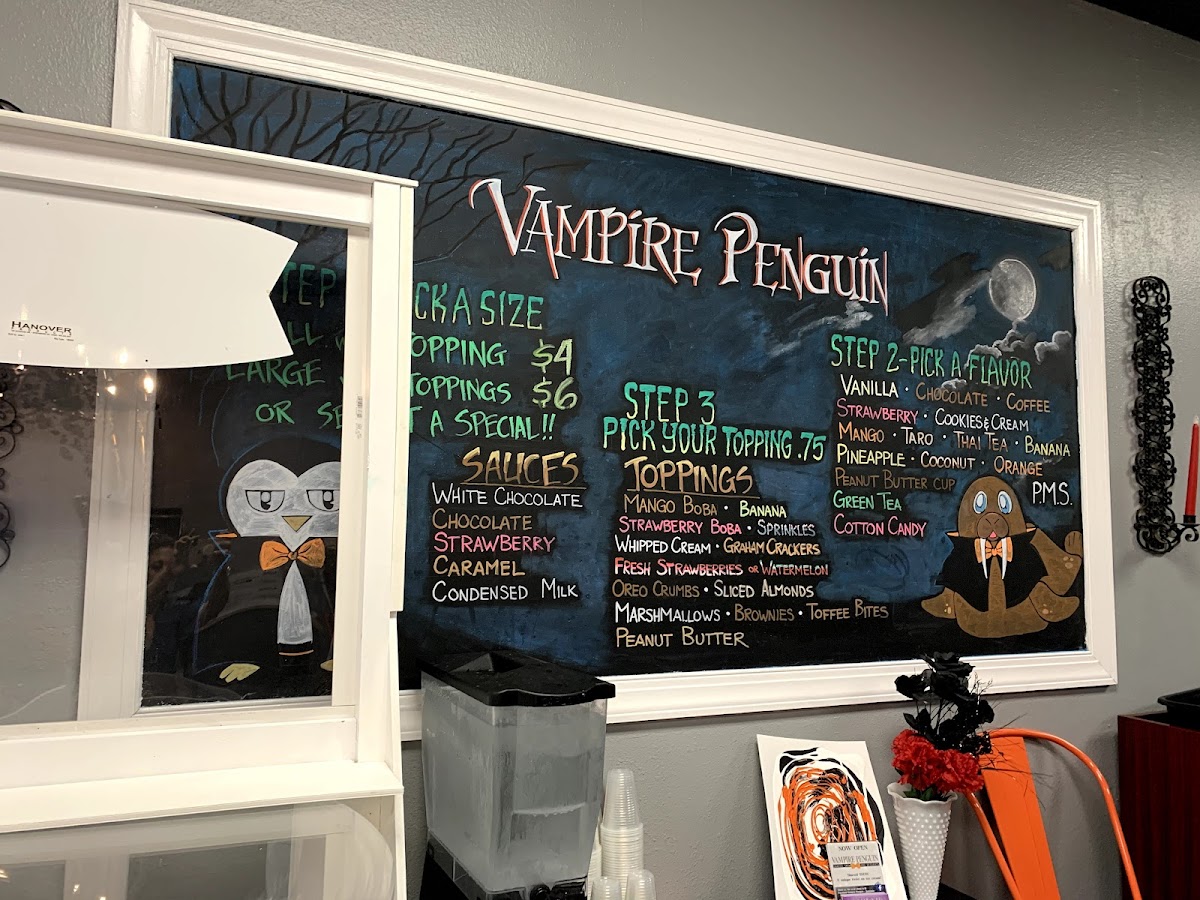 VAMPIRE PENGUIN
TEP CK A SIZE
LL W OPPING $4
LARGE TOPPINGS $6
OR SE T A SPECIAL!!
SAUCES
WHITE CHOCOLATE
CHOCOLATE
STRAWBERRY
CARAMEL
CONDENSED MILK
STEP 3
PICK YOUR TOPPING .75
TOPPINGS
MANGO BOBA · BANANA
STRAWBERRY BOBA · SPRINKLES
WHIPPED CREAM · GRAHAM CRACKERS
FRESH STRAWBERRIES OR WATERMELON
OREO CRUMBS · SLICED ALMONDS
MARSHMALLOWS · BROWNIES · TOFFEE BITES
PEANUT BUTTER
STEP 2-PICK A FLAVOR
VANILLA · CHOCOLATE · COFFEE
STRAWBERRY · COOKIES & CREAM
MANGO · TARO · THAI TEA · BANANA
PINEAPPLE · COCONUT · ORANGE
PEANUT BUTTER CUP
GREEN TEA
COTTON CANDY
P.M.S.
HANOVER
NOW OPEN
VAMPIRE PENGUIN